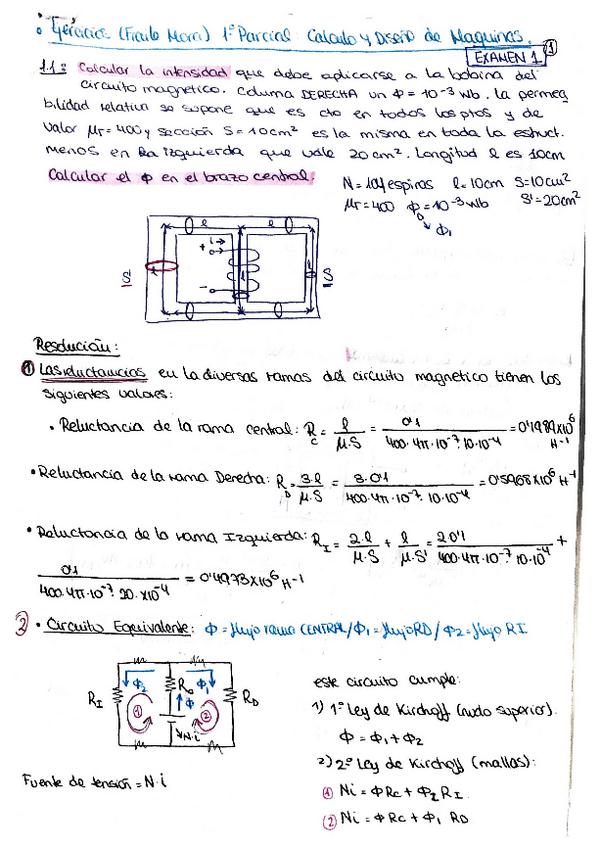 • Ejercicios (Fraile Mora) 1º Parcial: Calculo y Diseño de Maquinas.
EXAMEN 1 ①
1.1: Calcular la intensidad que debe aplicarse a la bobina del
circuito magnetico. Columa DERECHA un Φ = 10⁻³ Wb. La permea
bilidad relativa se supone que es cte en todos los ptos y de
valor μr = 400 y sección S = 10cm² es la misma en toda la estuct.
menos en la izquierda que vale 20cm². Longitud l es 10cm
Calcular el Φ en el brazo central.
N = 104 espiras l = 10cm S = 10cm²
μr = 400 Φ = 10⁻³ Wb S' = 20cm²
Φ₁
l l
+ i
l l l
S S
-
Resolución:
① Las reluctancias en la diversas ramas del circuito magnetico tienen los
siguientes valores:
• Reluctancia de la rama central: Rc = l / μ.S = 0'1 / 400.4π.10⁻⁷.10.10⁻⁴ = 0'1989x10⁶ H⁻¹
• Reluctancia de la rama Derecha: R_D = 3.l / μ.S = 3.0'1 / 400.4π.10⁻⁷.10.10⁻⁴ = 0'5968x10⁶ H⁻¹
• Reluctancia de la rama Izquierda: R_I = 2.l / μ.S + l / μ.S' = 2.0'1 / 400.4π.10⁻⁷.10.10⁻⁴ +
0'1 / 400.4π.10⁻⁷.20.x10⁻⁴ = 0'4973x10⁶ H⁻¹
② • Circuito Equivalente: Φ = flujo rama CENTRAL / Φ₁ = flujo RD / Φ₂ = flujo RI
R_I Φ₂ Rc Φ₁ R_D
① Φ ②
N.i
Fuente de tensión = N.i
este circuito cumple:
1) 1º Ley de Kirchoff (nudo superior).
Φ = Φ₁ + Φ₂
2) 2º Ley de Kirchoff (mallas):
① Ni = ΦRc + Φ₂ R_I
② Ni = ΦRc + Φ₁ RD